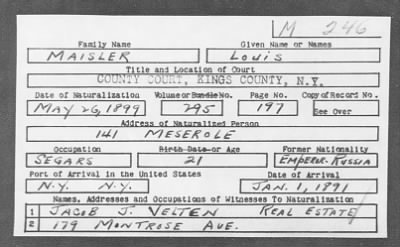 M 246
Family Name Given Name or Names
MAISLER LOUIS
Title and Location of Court
COUNTY COURT, KINGS COUNTY, N.Y.
Date of Naturalization Volume or Bundle No. Page No. Copy of Record No.
MAY 26, 1899 295 197 See Over
Address of Naturalized Person
141 MESEROLE
Occupation Birth Date or Age Former Nationality
SEGARS 21 EMPEROR-RUSSIA
Port of Arrival in the United States Date of Arrival
N.Y. N.Y. JAN. 1, 1891
Names, Addresses and Occupations of Witnesses To Naturalization
1 JACOB J. VELTEN REAL ESTATE
2 179 MONTROSE AVE.